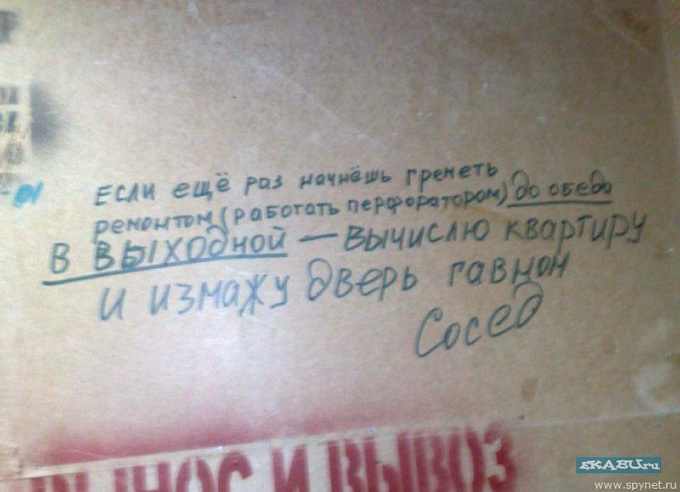 если ещё раз начнёшь греметь
ремонтом (работать перфоратором) до обеда
в выходной — вычислю квартиру
и измажу дверь гавном
Сосед
ЫНОС И ВЫВОЗ
EKABU.ru
www.spynet.ru